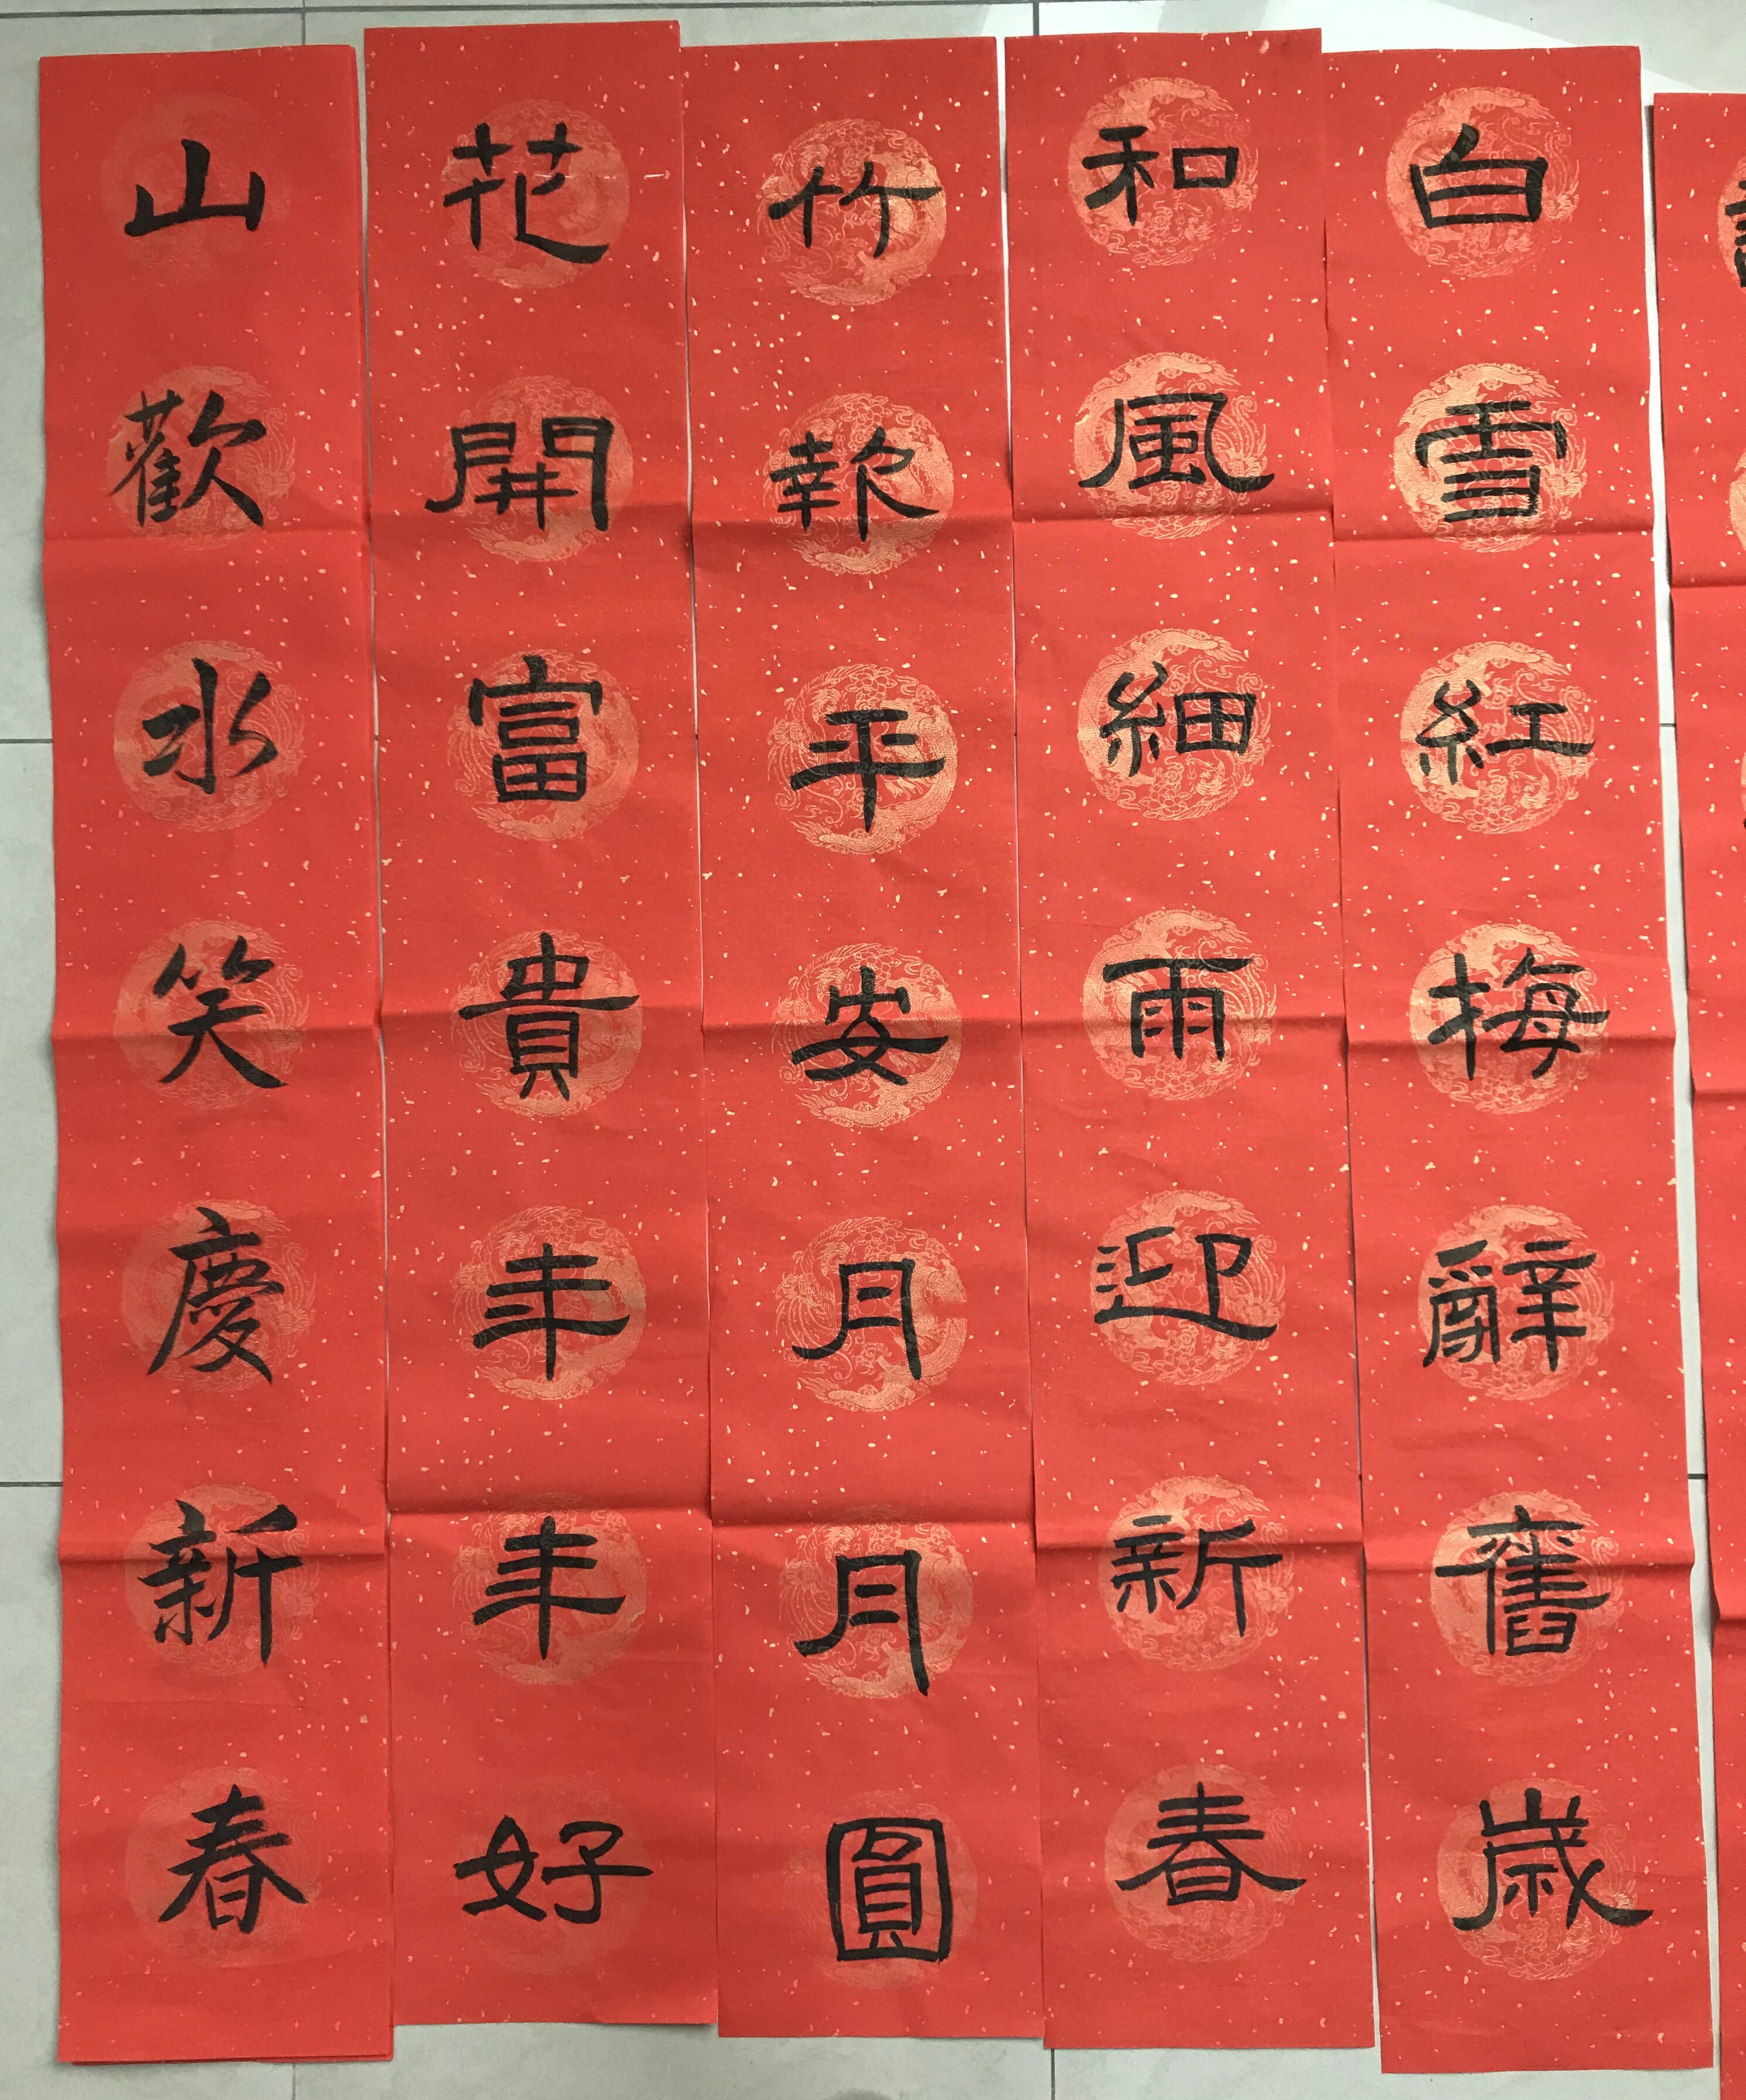 白雪紅梅辭舊歲
和風細雨迎新春
竹報平安月月圓
花開富貴年年好
山歡水笑慶新春